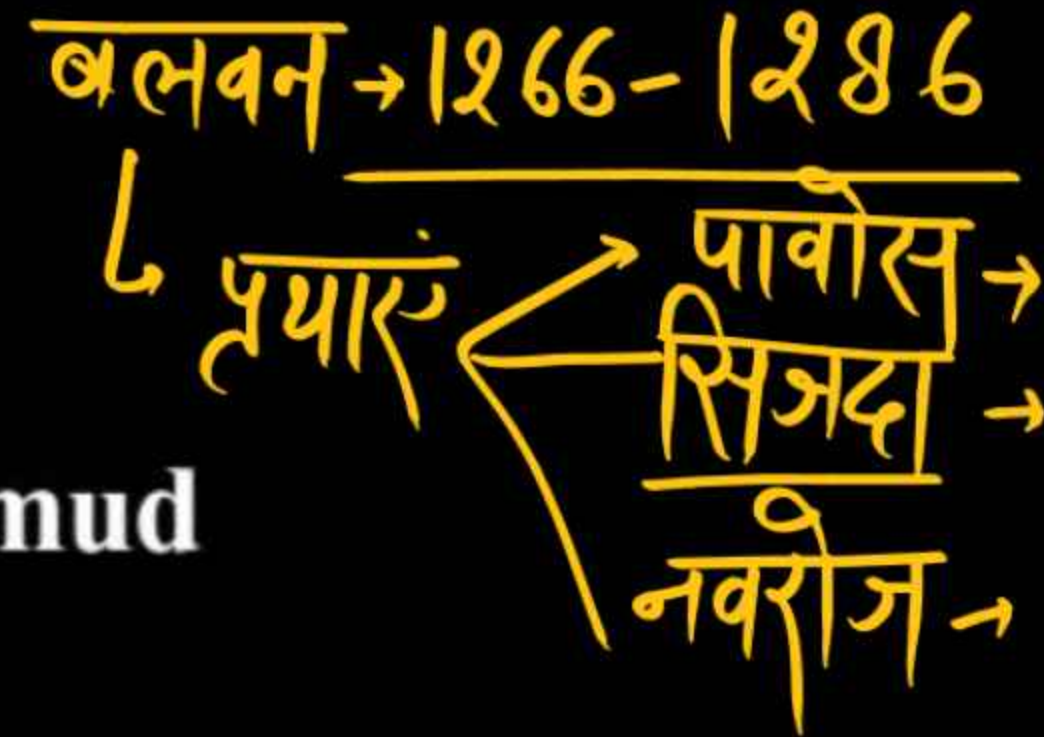 बलवन → 1266 - 1286
प्रथाएं
पावोस →
सिजदा →
नवरोज →
mud